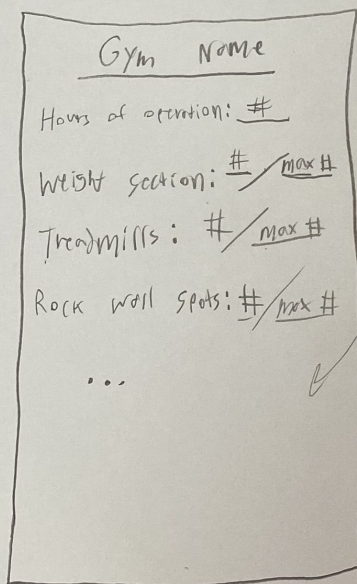 Gym Name
Hours of operation: #
Weight section: #/max #
Treadmills: #/max #
Rock wall spots: #/max #
...